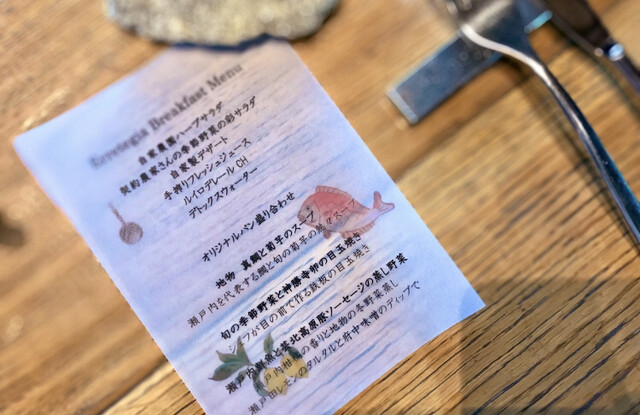 Breakfast Menu
自家農園ハーブサラダ
契約農家さんの季節野菜の彩サラダ
自家製デザート
手搾りフレッシュジュース
ルイロデレール CH
デトックスウォーター
オリジナルパン盛り合わせ
地物 真鯛と菊芋のスープ
瀬戸内を代表する鯛と旬の菊芋の スープ
旬の季節野菜と神勝寺卵の目玉焼き
シェフが目の前で作る鉄板の目玉焼き
瀬戸内 と芸北高原豚ソーセージの蒸し野菜
瀬戸内柑橘の香りと地物の冬野菜蒸し
瀬戸田レモンのタルタルと府中味噌のディップで